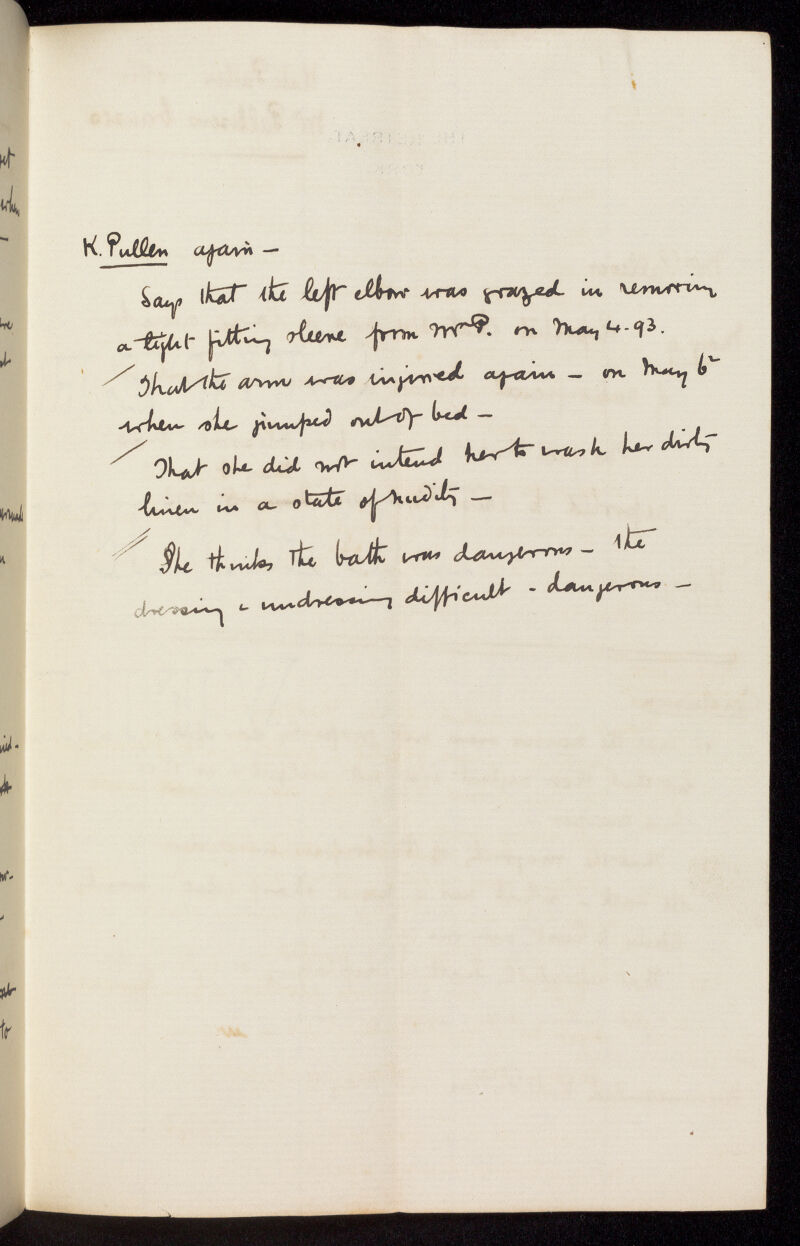 K. Pullen again —
Says that the left elbow was grazed in removing
a tight fitting sleeve from Mrs P. on May 4. 93.
That the arm was injured again — on May 6
when she jumped out of bed —
That she did not intend her to wash her dirty
linen in a state of nudity —
She thinks the bath was dangerous — the
dressing & undressing difficult & dangerous —